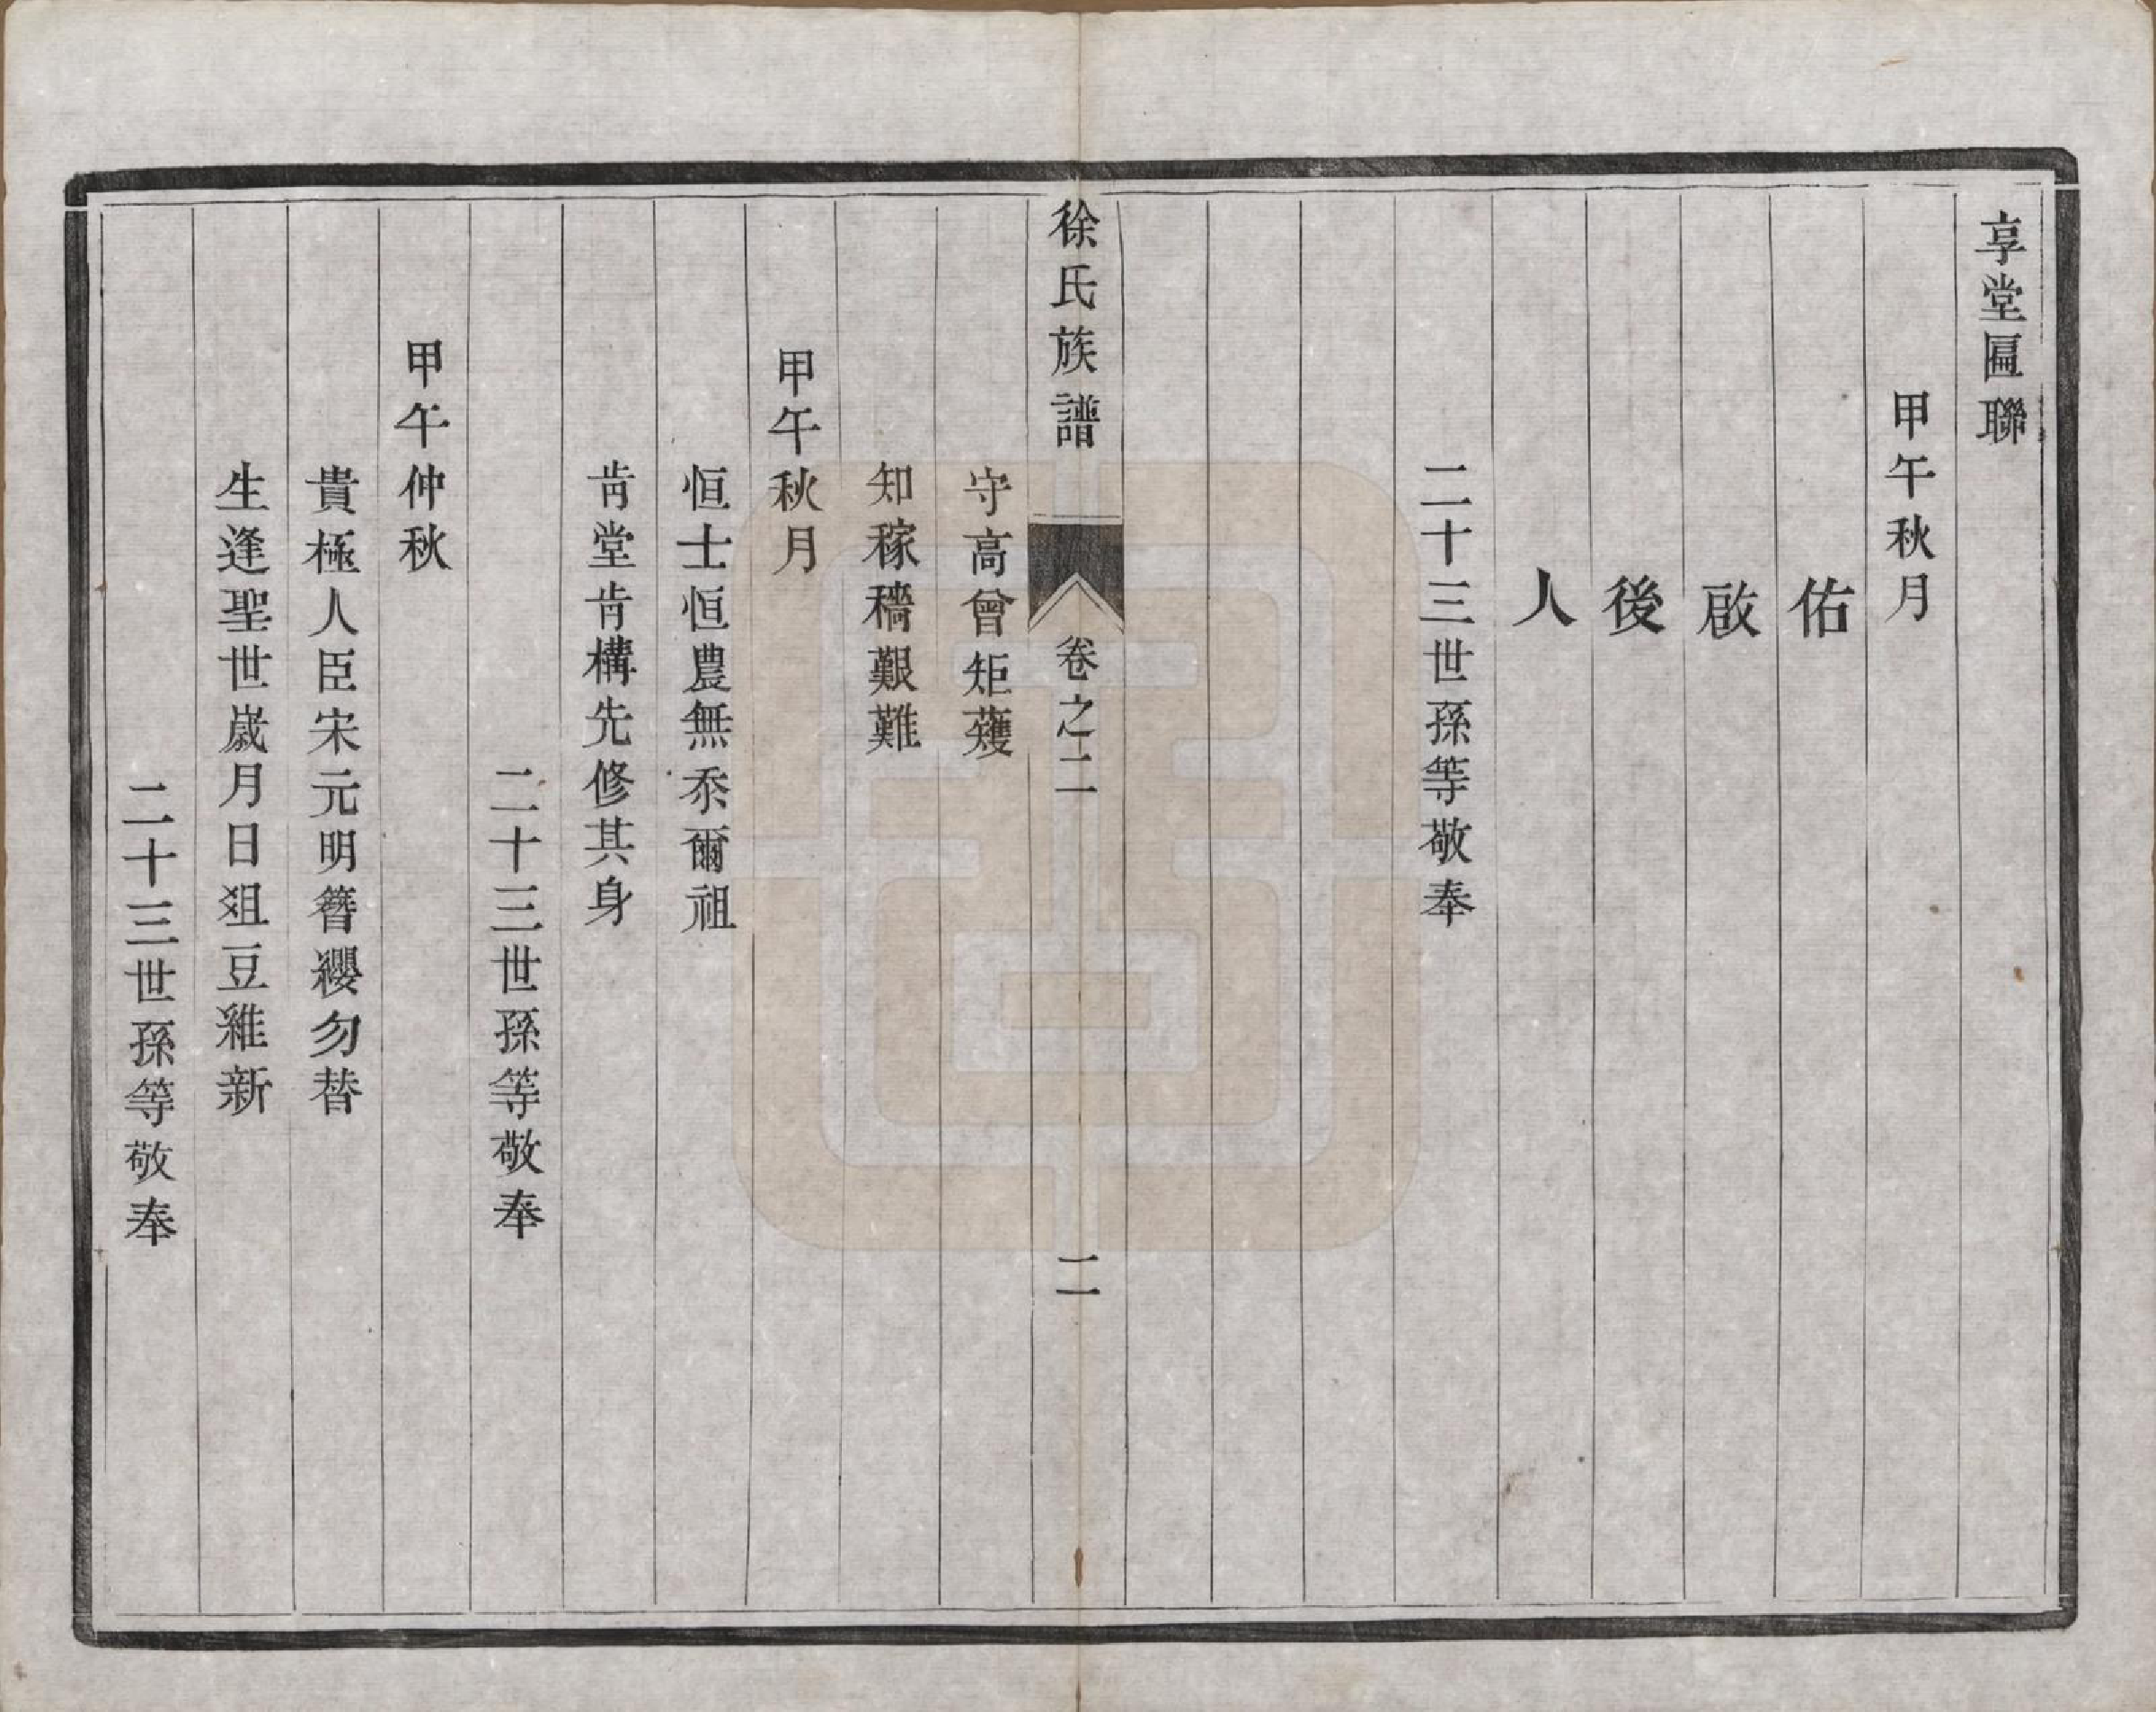 享堂匾聯
甲午秋月
佑
啟
後
人
二十三世孫等敬奉
徐氏族譜 卷之二 二
守高曾矩矱
知稼穡艱難
甲午秋月
恒士恒農無忝爾祖
肯堂肯構先修其身
二十三世孫等敬奉
甲午仲秋
貴極人臣宋元明簪纓勿替
生逢聖世歲月日俎豆維新
二十三世孫等敬奉